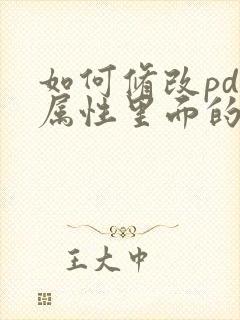 如何修改pd
属性里面的
王大中